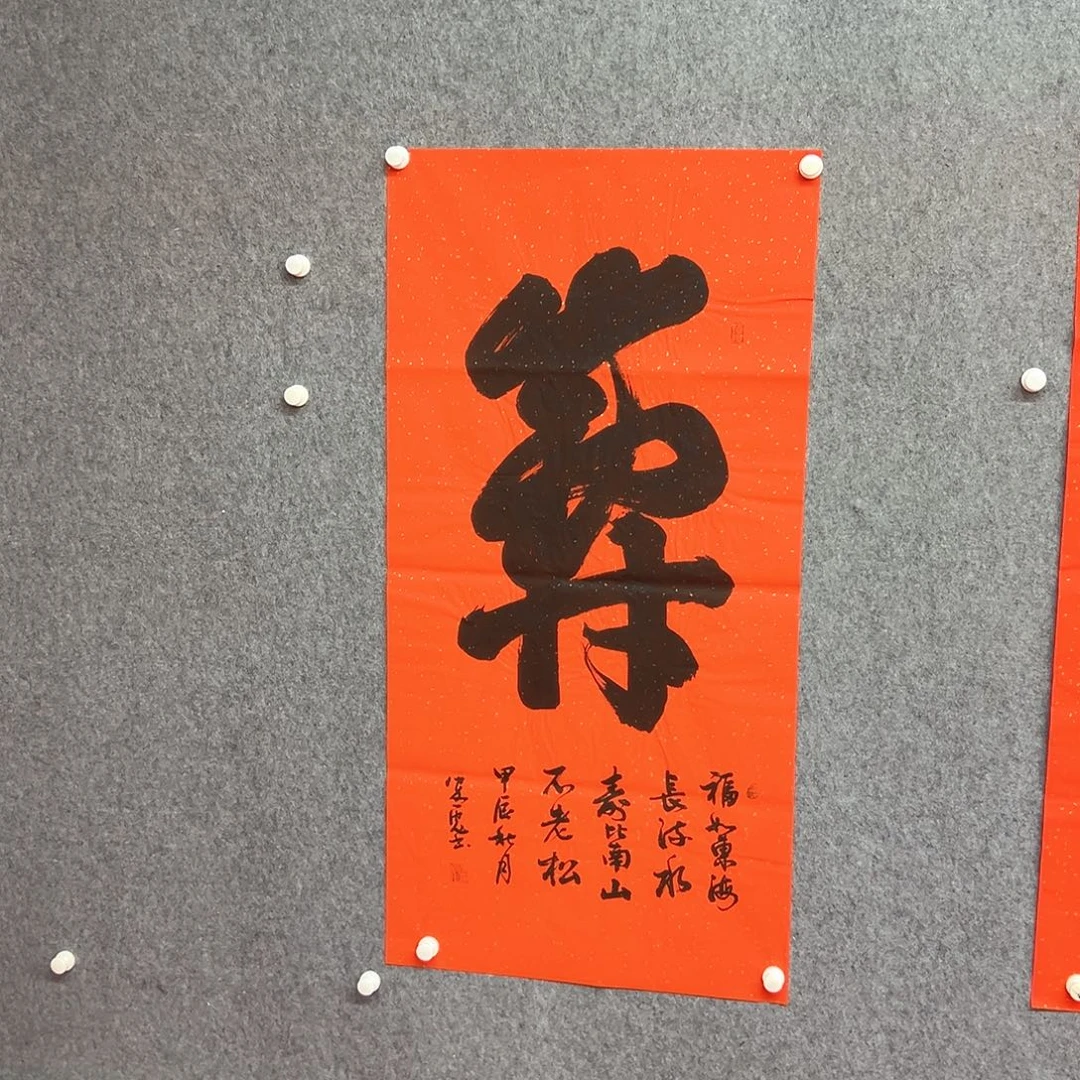 壽
福如東海
長流水
壽比南山
不老松
甲辰秋月